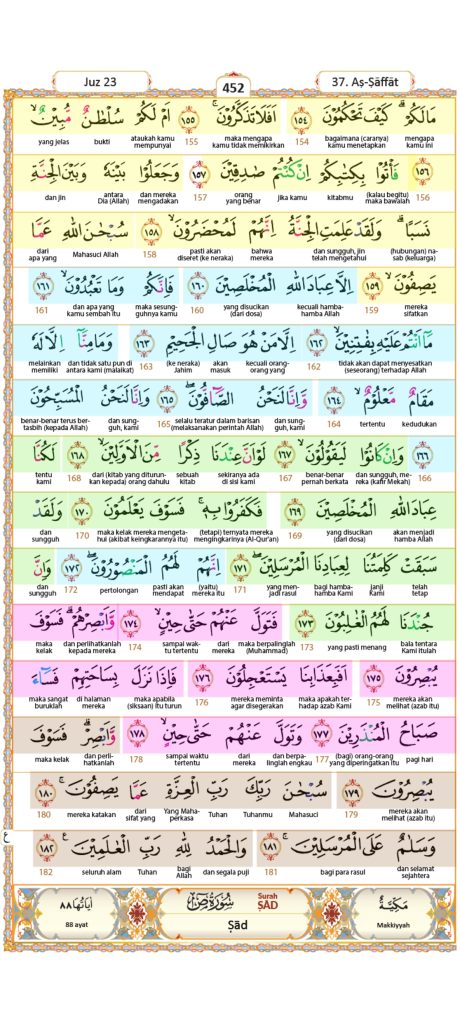 Juz 23
452
37. Aṣ-Ṣāffāt
مَا لَكُمْ ۗ كَيْفَ تَحْكُمُوْنَ ١٥٤ اَفَلَا تَذَكَّرُوْنَ ۚ ١٥٥ اَمْ لَكُمْ سُلْطٰنٌ مُّبِيْنٌ ۙ
mengapa kamu ini bagaimana (caranya) kamu menetapkan 154 maka mengapa kamu tidak memikirkan 155 ataukah kamu mempunyai bukti yang jelas
١٥٦ فَأْتُوْا بِكِتٰبِكُمْ اِنْ كُنْتُمْ صٰدِقِيْنَ ١٥٧ وَجَعَلُوْا بَيْنَهٗ وَبَيْنَ الْجِنَّةِ
156 (kalau begitu) maka bawalah kitabmu Jika kamu orang yang benar 157 dan mereka mengadakan antara Dia (Allah) dan jin
نَسَبًا ۗ وَلَقَدْ عَلِمَتِ الْجِنَّةُ اِنَّهُمْ لَمُحْضَرُوْنَ ۙ ١٥٨ سُبْحٰنَ اللّٰهِ عَمَّا
(hubungan) nasab (keluarga) dan sungguh, jin telah mengetahui bahwa mereka pasti akan diseret (ke neraka) 158 Mahasuci Allah dari apa yang
يَصِفُوْنَ ۙ ١٥٩ اِلَّا عِبَادَ اللّٰهِ الْمُخْلَصِيْنَ ١٦٠ فَاِنَّكُمْ وَمَا تَعْبُدُوْنَ ۙ ١٦١
mereka sifatkan 159 kecuali hamba-hamba Allah yang disucikan (dari dosa) 160 maka sesungguhnya kamu dan apa yang kamu sembah itu 161
مَآ اَنْتُمْ عَلَيْهِ بِفٰتِنِيْنَ ۙ ١٦٢ اِلَّا مَنْ هُوَ صَالِ الْجَحِيْمِ ١٦٣ وَمَا مِنَّآ اِلَّا لَهٗ
tidak akan dapat menyesatkan (seseorang) terhadap Allah 162 kecuali orang-orang yang akan masuk (ke neraka) Jahim 163 dan tidak satu pun di antara kami (malaikat) melainkan memiliki
مَقَامٌ مَّعْلُوْمٌ ۙ ١٦٤ وَاِنَّا لَنَحْنُ الصَّاۤفُّوْنَ ۖ ١٦٥ وَاِنَّا لَنَحْنُ الْمُسَبِّحُوْنَ
kedudukan tertentu 164 dan sungguh, kami selalu teratur dalam barisan (melaksanakan perintah Allah) 165 dan sungguh, kami benar-benar terus bertasbih (kepada Allah)
١٦٦ وَاِنْ كَانُوْا لَيَقُوْلُوْنَ ۙ ١٦٧ لَوْ اَنَّ عِنْدَنَا ذِكْرًا مِّنَ الْاَوَّلِيْنَ ۙ ١٦٨ لَكُنَّا
166 dan sungguh, mereka (kafir Mekah) benar-benar pernah berkata 167 sekiranya ada di sisi kami sebuah kitab dari (kitab yang diturunkan kepada) orang dahulu 168 tentu kami
عِبَادَ اللّٰهِ الْمُخْلَصِيْنَ ١٦٩ فَكَفَرُوْا بِهٖۚ فَسَوْفَ يَعْلَمُوْنَ ١٧٠ وَلَقَدْ
akan menjadi hamba Allah yang disucikan (dari dosa) 169 (tetapi) ternyata mereka mengingkarinya (Al-Qur'an) maka kelak mereka mengetahui (akibat keingkarannya itu) 170 dan sungguh
سَبَقَتْ كَلِمَتُنَا لِعِبَادِنَا الْمُرْسَلِيْنَ ۖ ١٧١ اِنَّهُمْ لَهُمُ الْمَنْصُوْرُوْنَ ۖ ١٧٢ وَاِنَّ
telah tetap Janji Kami bagi hamba-hamba Kami yang menjadi rasul 171 (yaitu) mereka itu pasti akan mendapat pertolongan 172 dan sungguh
جُنْدَنَا لَهُمُ الْغٰلِبُوْنَ ١٧٣ فَتَوَلَّ عَنْهُمْ حَتّٰى حِيْنٍ ۙ ١٧٤ وَاَبْصِرْهُمْۗ فَسَوْفَ
bala tentara Kami itulah yang pasti menang 173 maka berpalinglah (Muhammad) dari mereka sampai waktu tertentu 174 dan perlihatkanlah kepada mereka maka kelak
يُبْصِرُوْنَ ١٧٥ اَفَبِعَذَابِنَا يَسْتَعْجِلُوْنَ ١٧٦ فَاِذَا نَزَلَ بِسَاحَتِهِمْ فَسَاۤءَ
mereka akan melihat (azab itu) 175 maka apakah terhadap azab Kami mereka meminta agar disegerakan 176 maka apabila (siksaan) itu turun di halaman mereka maka sangat buruklah
صَبَاحُ الْمُنْذَرِيْنَ ١٧٧ وَتَوَلَّ عَنْهُمْ حَتّٰى حِيْنٍ ۙ ١٧٨ وَّاَبْصِرْۗ فَسَوْفَ
pagi hari (bagi) orang-orang yang diperingatkan itu 177 dan berpalinglah engkau dari mereka sampai waktu tertentu 178 dan perlihatkanlah maka kelak
يُبْصِرُوْنَ ١٧٩ سُبْحٰنَ رَبِّكَ رَبِّ الْعِزَّةِ عَمَّا يَصِفُوْنَ ۚ ١٨٠
mereka akan melihat (azab itu) 179 Mahasuci Tuhanmu Tuhan Yang Mahaperkasa dari sifat yang mereka katakan 180
وَسَلٰمٌ عَلَى الْمُرْسَلِيْنَ ۚ ١٨١ وَالْحَمْدُ لِلّٰهِ رَبِّ الْعٰلَمِيْنَ ࣖ ١٨٢
ع
dan selamat sejahtera bagi para rasul 181 dan segala puji bagi Allah Tuhan seluruh alam 182
مَكِّيَّةٌ سُوْرَةُ صٓ اٰيَاتُهَا ٨٨
Makkiyyah Surah ṢĀD Ṣād 88 ayat